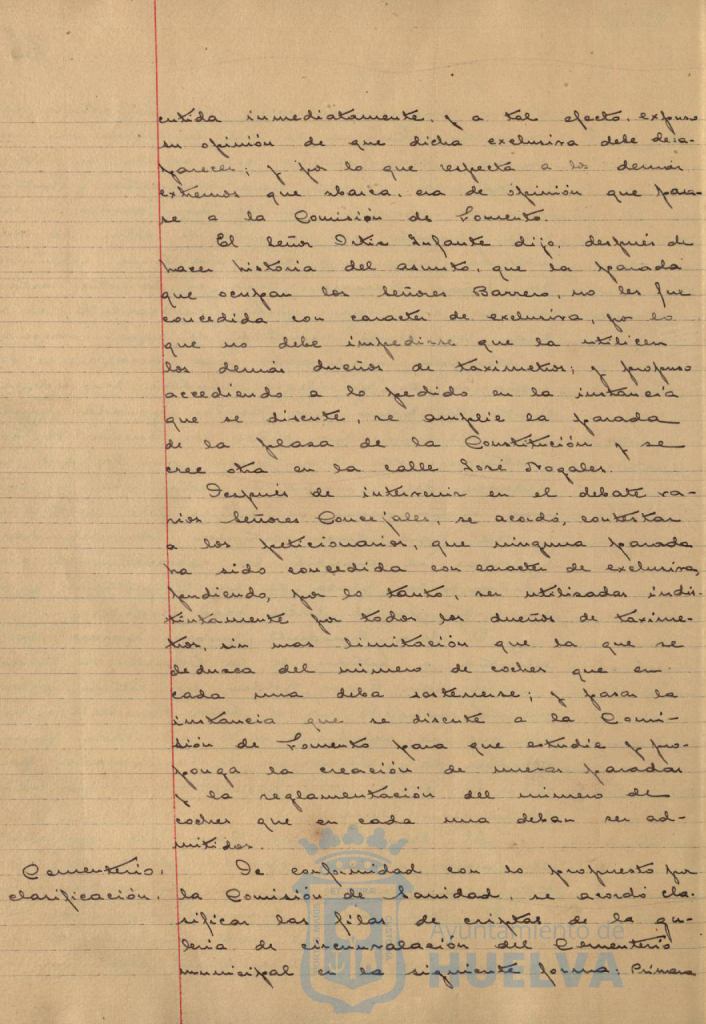 cutida inmediatamente, y a tal efecto, expuso
su opinión de que dicha exclusiva debe desa-
parecer; y por lo que respecta a los demás
extremos que abarca, era de opinión que pasa-
se a la Comisión de Fomento.
El Señor Ortiz Infante dijo, después de
hacer historia del asunto, que la parada
que ocupan los Señores Barrero, no les fue
concedida con caracter de exclusiva, por lo
que no debe impedirse que la utilicen
los demás dueños de taximetros; y propuso
accediendo a lo pedido en la instancia
que se discute, se amplie la parada
de la plaza de la Constitución y se
cree otra en la calle José Nogales.
Después de intervenir en el debate va-
rios Señores Concejales, se acordó, contestar
a los peticionarios, que ninguna parada
ha sido concedida con caracter de exclusiva,
pudiendo, por lo tanto, ser utilizadas indis-
tintamente por todos los dueños de taxime-
tros, sin mas limitación que la que se
deduzca del número de coches que en
cada una deba sostenerse; y pasar la
instancia que se discute a la Comi-
sión de Fomento para que estudie y pro-
ponga la creación de nuevas paradas
y la reglamentación del número de
coches que en cada una deban ser ad-
mitidos.
Cementerio,
clasificación.
De conformidad con lo propuesto por
la Comisión de Sanidad, se acordó cla-
sificar las filas de criptas de la ga-
lería de circunvalación del Cementerio
municipal en la siguiente forma: Primera
Ayuntamiento de
HUELVA